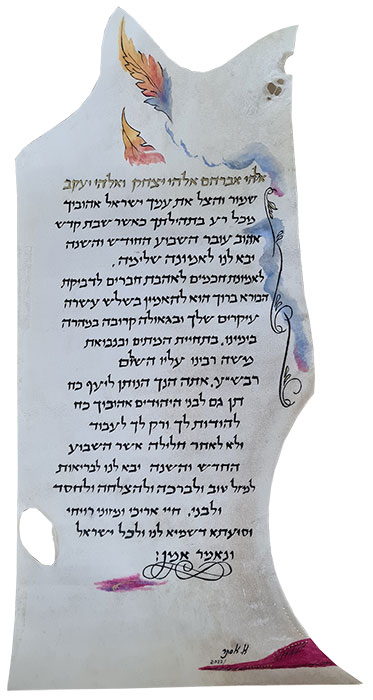 אלהי אברהם אלהי יצחק ואלהי יעקב
שמור והצל את עמך ישראל אהוביך
מכל רע בתהילתך כאשר שבת קדש
אהוב עובר השבוע החודש והשנה
יבא לנו לאמונה שלימה,
לאמונת חכמים לאהבת חברים לדבוקת
הבורא ברוך הוא להאמין בשלש עשרה
עיקרים שלך ובגאולה קרובה במהרה
בימינו, בתחיית המתים ובנבואת
משה רבינו עליו השלום
רבש״ע, אתה הנך הנותן ליעף כח
תן גם לבני היהודים אהוביך כח
להודות לך ורק לך לעבוד
ולא לאחר חלילה אשר השבוע
החדש והשנה יבא לנו לבריאות
למזל טוב ולברכה ולהצלחה ולחסד
ולבני, חיי אריכי ומזוני רויחי
וסיעתא דשמיא לנו ולכל ישראל
ונאמר אמן:
2022